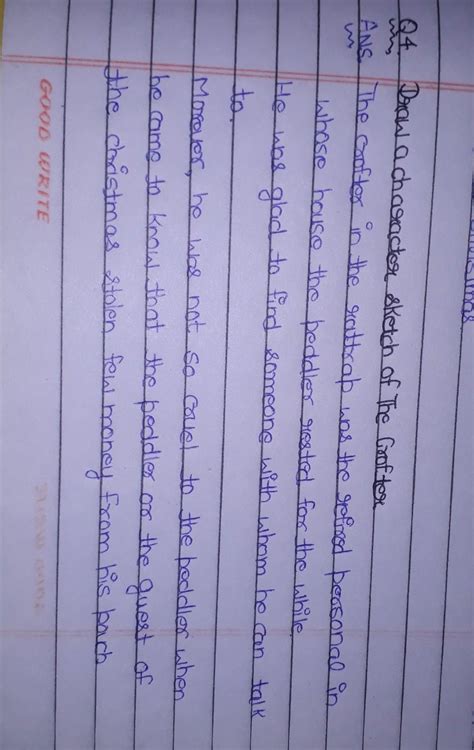 Q4. Draw a character sketch of The Crofter
ANS The crofter in the rattrap was the refined personal in
whose house the peddler rested for the while.
He was glad to find someone with whom he can talk
to.
Moreover, he was not so cruel to the peddler when
he came to know that the peddler or the guest of
the christmas stolen few money from his pouch
GOOD WRITE